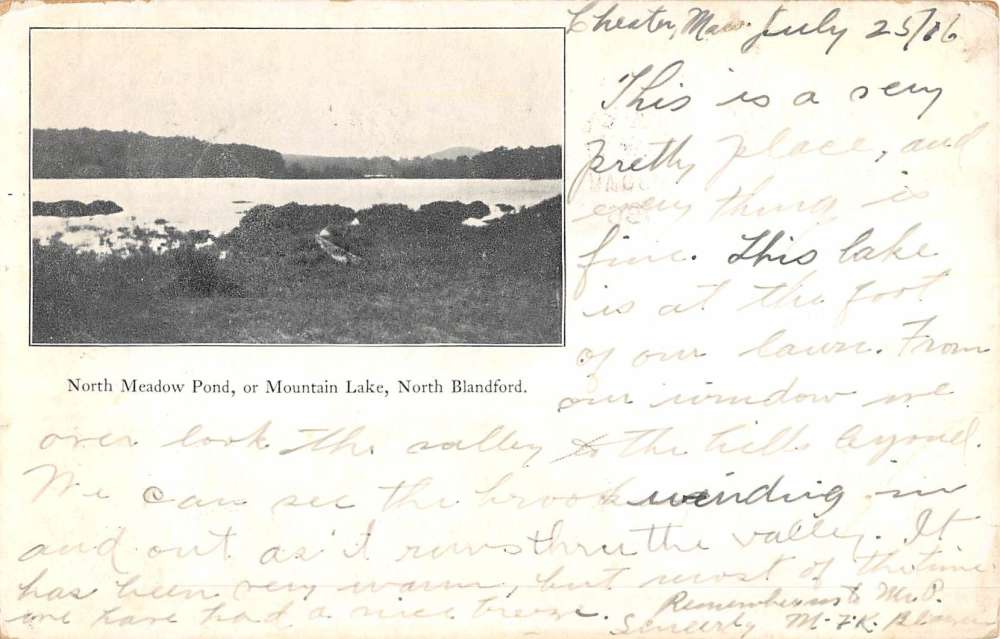 Chester, Mass. July 25/06
This is a very
pretty place, and
every thing is
fine. This lake
is at the foot
of our lawn. From
our window we
North Meadow Pond, or Mountain Lake, North Blandford.
over look the valley to the hills beyond.
We can see the brook winding in
and out as it runs thru the valley. It
has been very warm, but most of the time
we have had a nice breeze. Remember us to Mr. P.
Sincerely M. F. K.